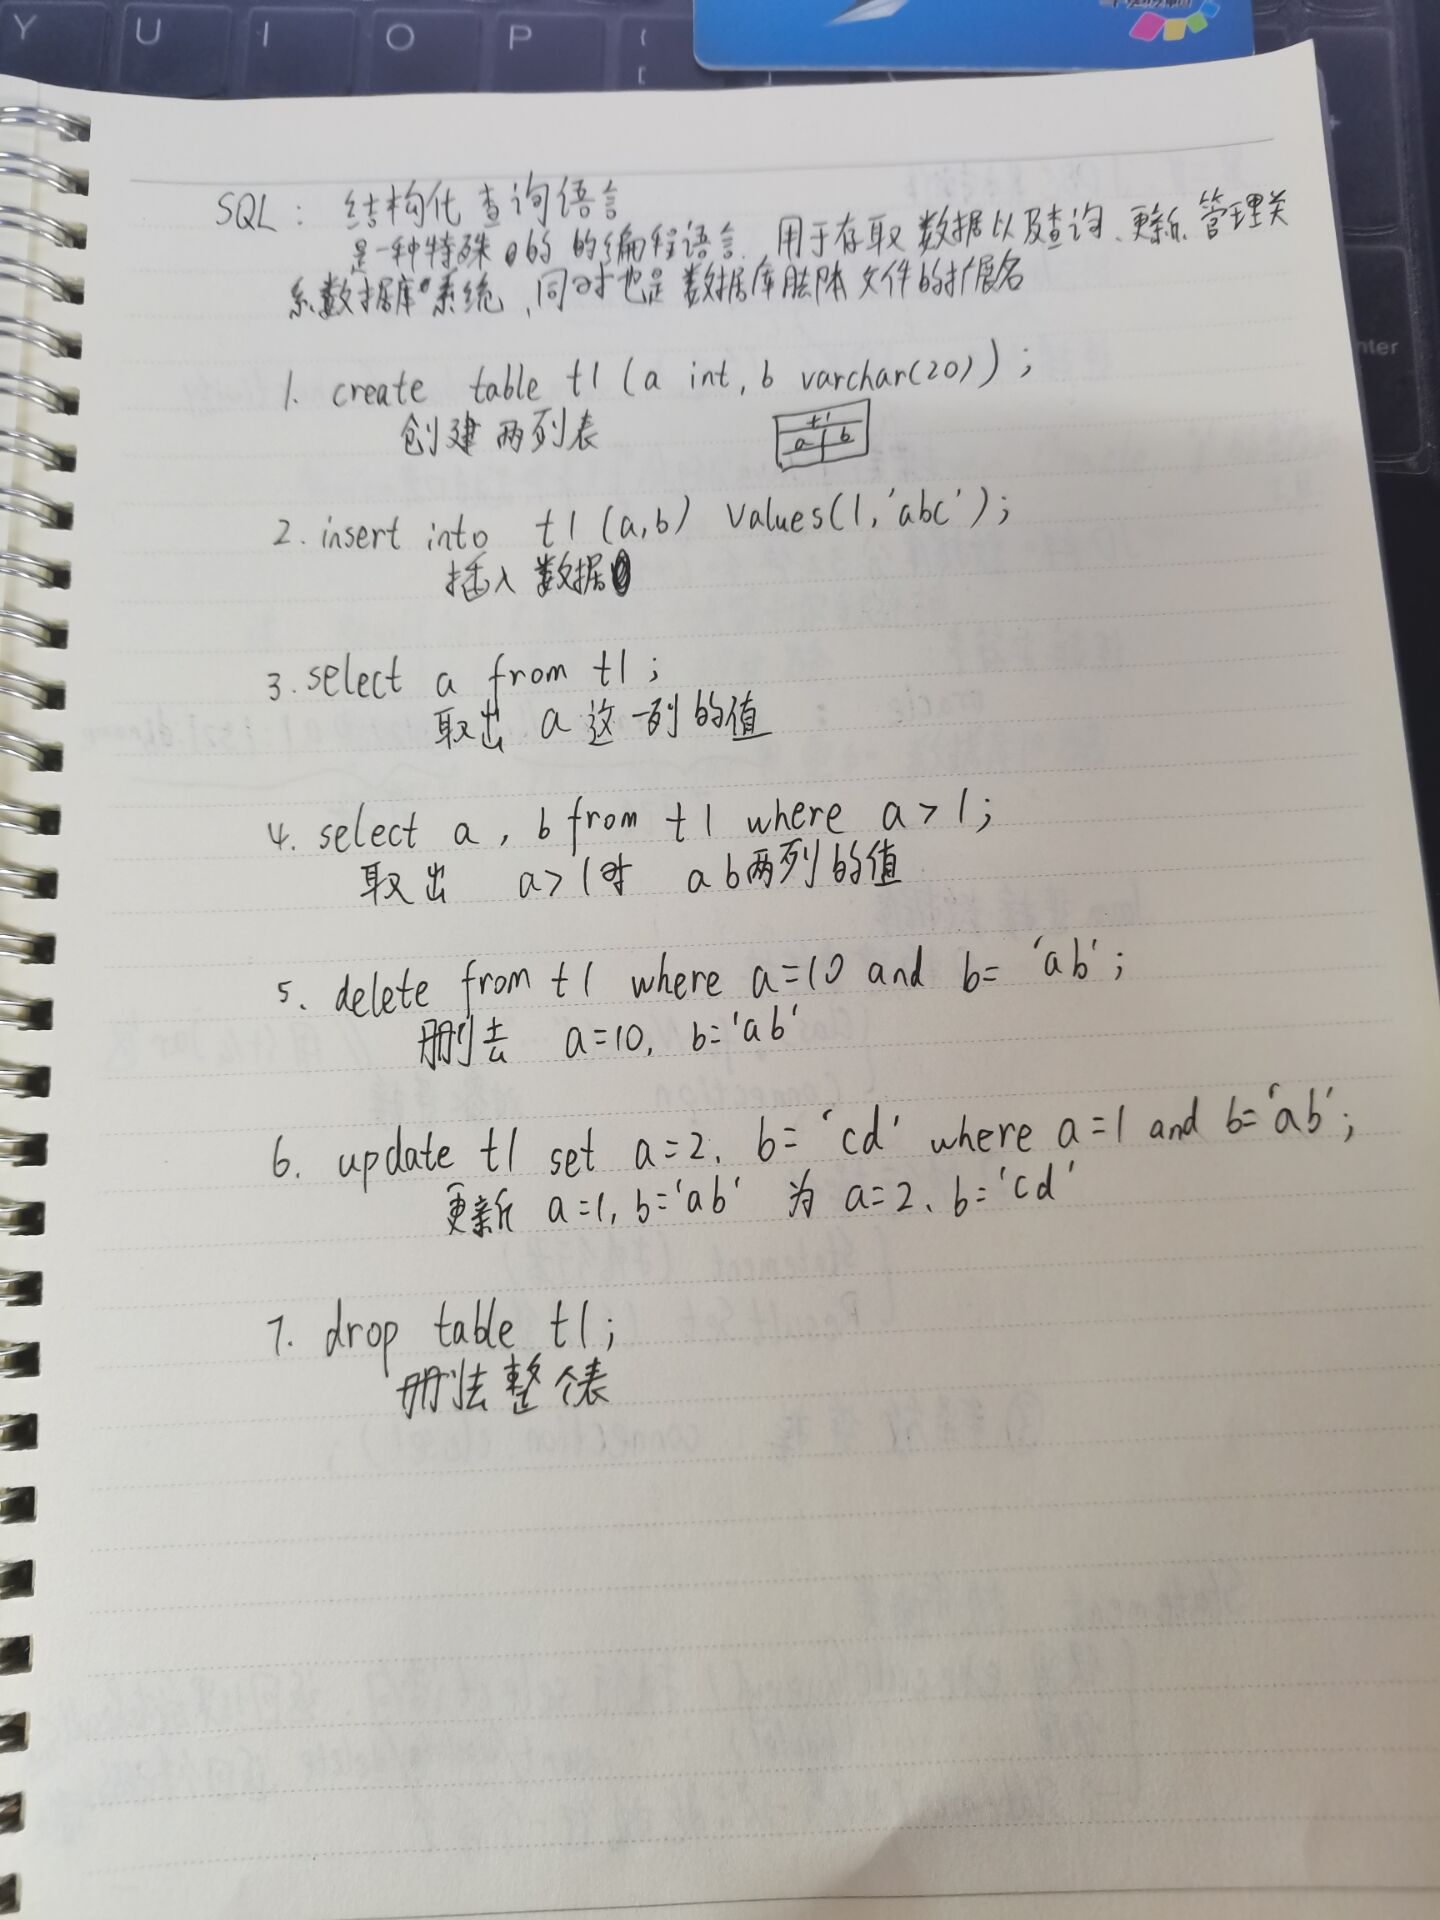 Y U I O P
SQL: 结构化查询语言
是一种特殊目的的编程语言,用于存取数据以及查询、更新、管理关
系数据库系统,同时也是数据库脚本文件的扩展名
1. create table t1 (a int, b varchar(20));
创建两列表
t1
a b
2. insert into t1 (a,b) values(1,'abc');
插入数据
3. select a from t1;
取出 a 这一列的值
4. select a, b from t1 where a > 1;
取出 a>1时 a b两列的值
5. delete from t1 where a=10 and b= 'ab';
删去 a=10, b='ab'
6. update t1 set a=2, b='cd' where a=1 and b='ab';
更新 a=1, b='ab' 为 a=2、b='cd'
7. drop table t1;
删去整个表